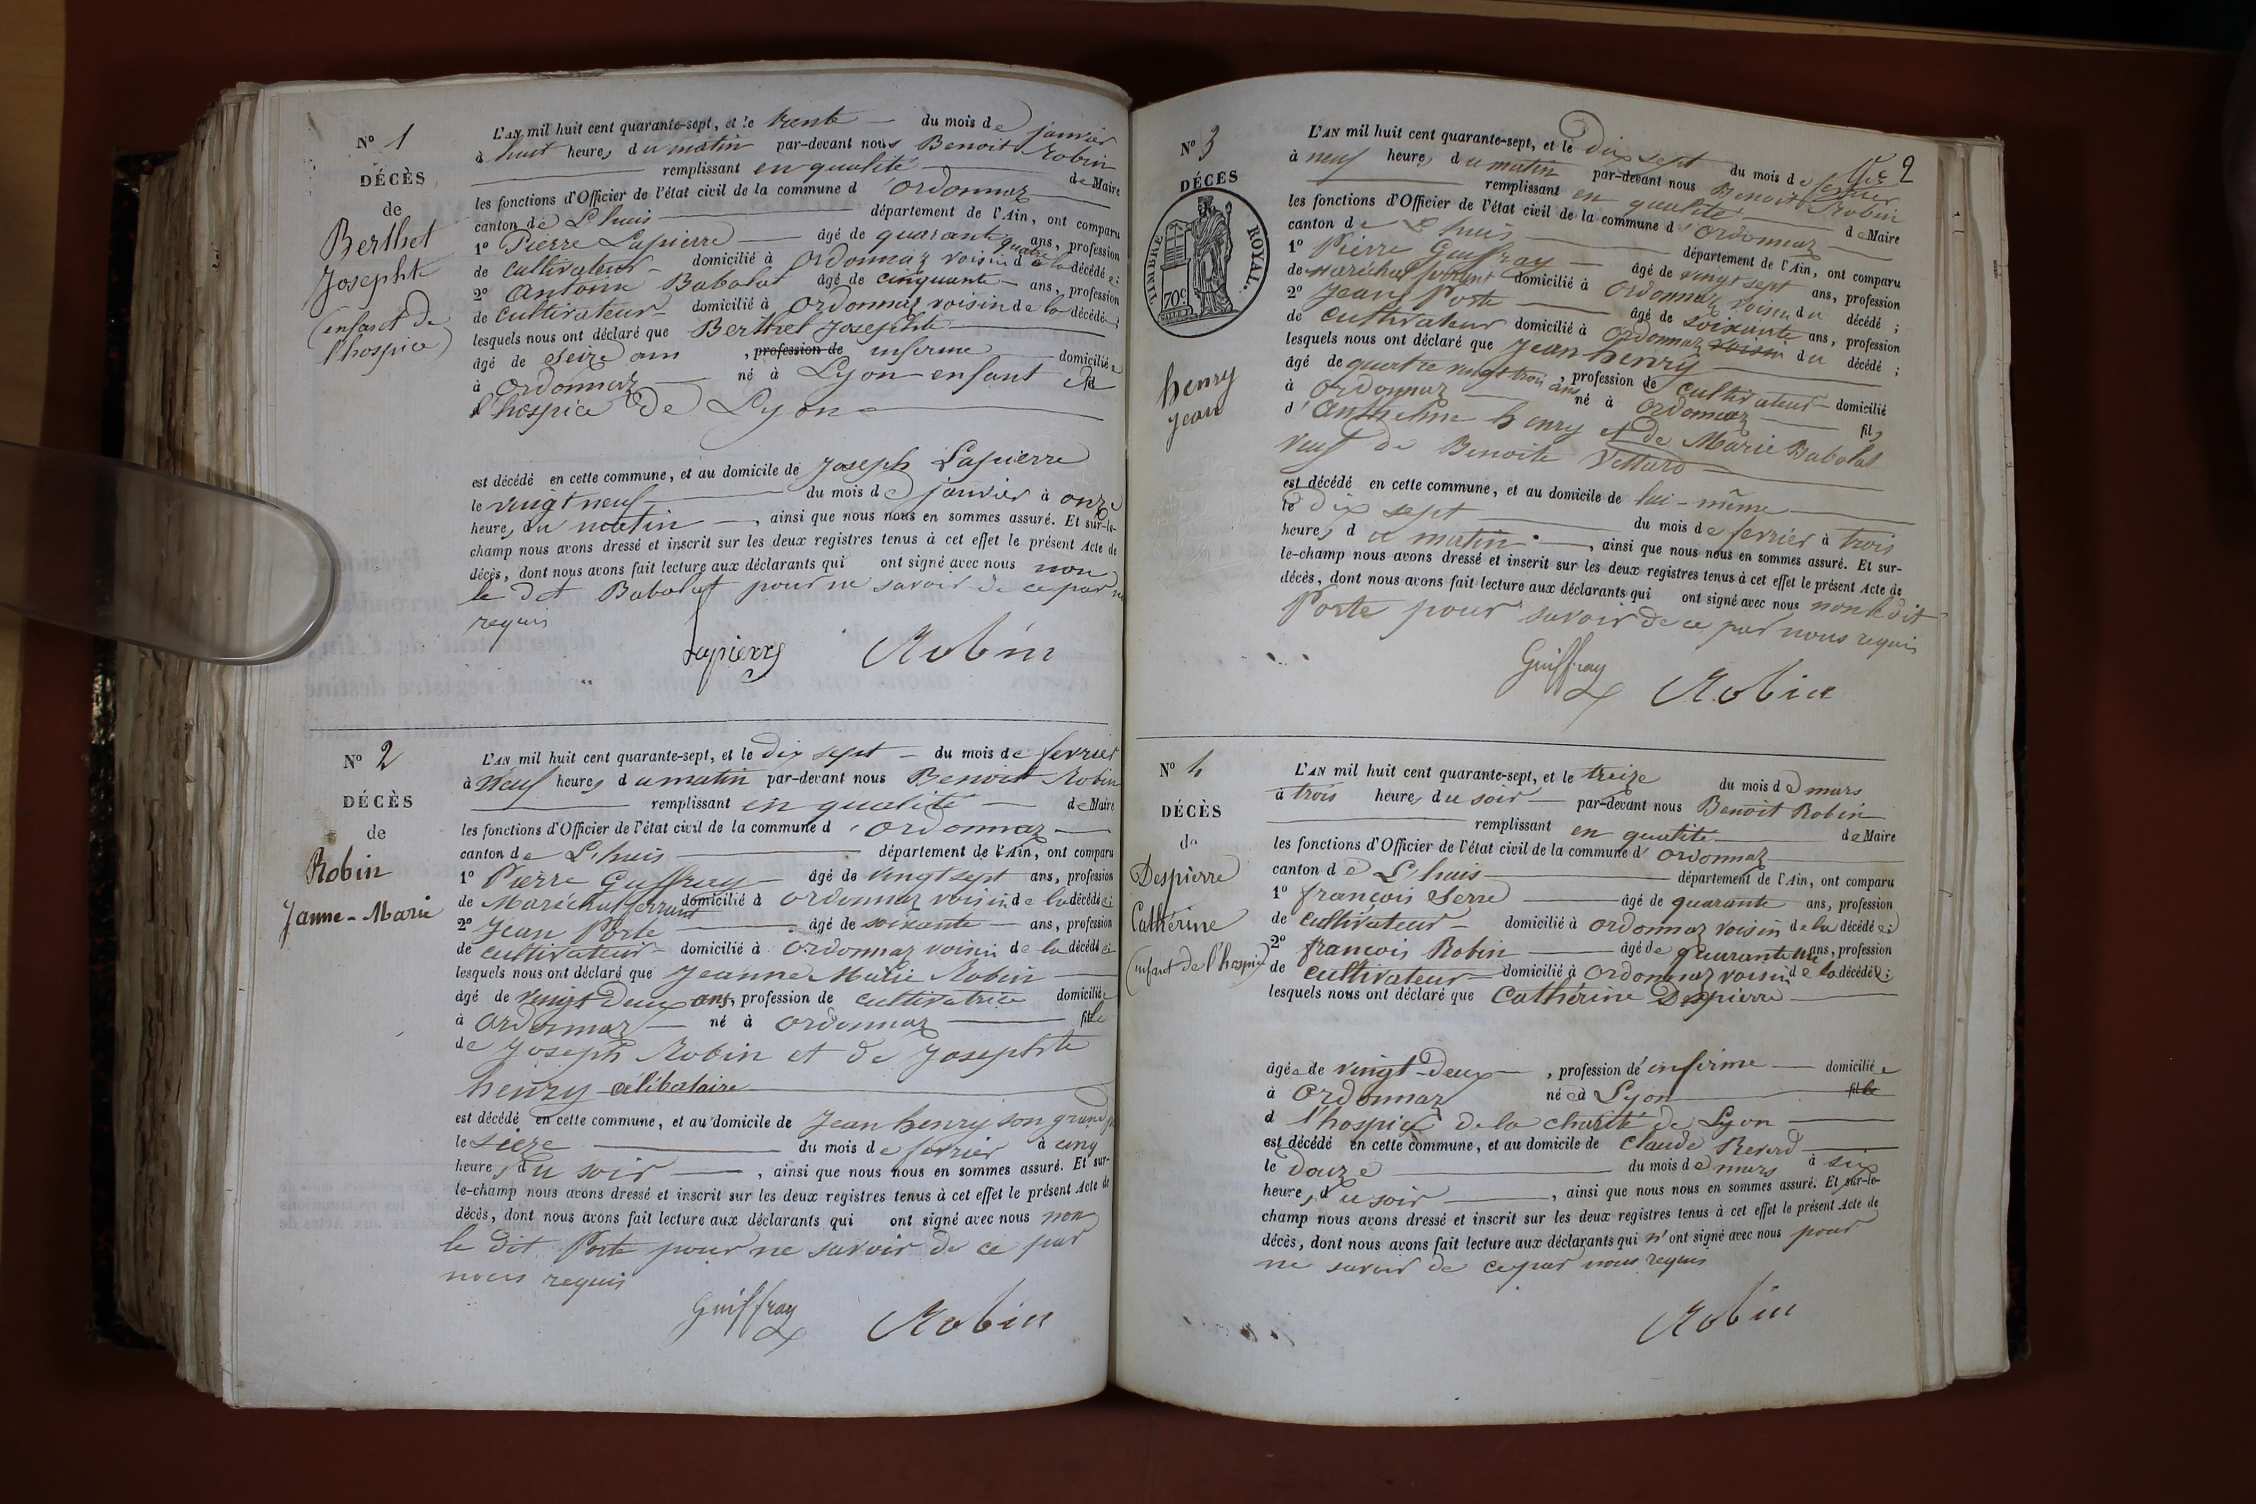 N° 1
DÉCÈS
de
Berthet
Josephte
(enfant de
l'hospice)
L'AN mil huit cent quarante-sept, et le trente du mois de janvier
à huit heures du matin par-devant nous Benoit Robin
remplissant en qualité de Maire
les fonctions d'Officier de l'état civil de la commune d'Ordonnaz
canton de L'huis département de l'Ain, ont comparu
1° Pierre Lapierre âgé de quarante quatre ans, profession
de cultivateur domicilié à Ordonnaz voisin de la décédée;
2° Antoine Babolat âgé de cinquante ans, profession
de cultivateur domicilié à Ordonnaz voisin de la décédée;
lesquels nous ont déclaré que Berthet Josephte
âgé de seize ans, profession de infirme domiciliée
à Ordonnaz né à Lyon enfant de
l'hospice de Lyon
est décédé en cette commune, et au domicile de Joseph Lapierre
le vingt neuf du mois de janvier à onze
heures du matin, ainsi que nous nous en sommes assuré. Et sur-le-
champ nous avons dressé et inscrit sur les deux registres tenus à cet effet le présent Acte de
décès, dont nous avons fait lecture aux déclarants qui ont signé avec nous non
le dit Babolat pour ne savoir de ce par
requis
Lapierre Robin
N° 2
DÉCÈS
de
Robin
Janne-Marie
L'AN mil huit cent quarante-sept, et le dix sept du mois de fevrier
à neuf heures du matin par-devant nous Benoit Robin
remplissant en qualité de Maire
les fonctions d'Officier de l'état civil de la commune d'Ordonnaz
canton de L'huis département de l'Ain, ont comparu
1° Pierre Guffray âgé de vingt sept ans, profession
de Maréchal ferrant domicilié à Ordonnaz voisin de la décédée;
2° Jean Porte âgé de soixante ans, profession
de cultivateur domicilié à Ordonnaz voisin de la décédée;
lesquels nous ont déclaré que Jeanne Marie Robin
âgé de vingt deux ans, profession de cultivatrice domiciliée
à Ordonnaz né à Ordonnaz fille
de Joseph Robin et de Josephte
henry célibataire
est décédé en cette commune, et au domicile de Jean henry son grand
le sieze du mois de fevrier à cinq
heures du soir, ainsi que nous nous en sommes assuré. Et sur-
le-champ nous avons dressé et inscrit sur les deux registres tenus à cet effet le présent Acte de
décès, dont nous avons fait lecture aux déclarants qui ont signé avec nous non
le dit Porte pour ne savoir de ce par
nous requis
Guiffray Robin
2
N° 3
DÉCÈS
TIMBRE ROYAL.
70c
henry
jean
L'AN mil huit cent quarante-sept, et le dix sept du mois de fevrier
à neuf heures du matin par-devant nous Benoit Robin
remplissant en qualité de Maire
les fonctions d'Officier de l'état civil de la commune d'Ordonnaz
canton de L'huis département de l'Ain, ont comparu
1° Pierre Guffray âgé de vingt sept ans, profession
de maréchal ferrant domicilié à Ordonnaz voisin du décédé;
2° Jean Porte âgé de soixante ans, profession
de cultivateur domicilié à Ordonnaz voisin du décédé;
lesquels nous ont déclaré que Jean henry
âgé de quatre vingt trois ans, profession de cultivateur domicilié
à Ordonnaz né à Ordonnaz fils
d'Anthelme henry et de Marie Babolat
veuf de Benoite
est décédé en cette commune, et au domicile de lui-même
le dix sept du mois de fevrier à trois
heures du matin, ainsi que nous nous en sommes assuré. Et sur-
le-champ nous avons dressé et inscrit sur les deux registres tenus à cet effet le présent Acte de
décès, dont nous avons fait lecture aux déclarants qui ont signé avec nous non le dit
Porte pour savoir de ce par nous requis
Guiffray Robin
N° 4
DÉCÈS
de
Despierre
Cathérine
(enfant de l'hospice)
L'AN mil huit cent quarante-sept, et le treize du mois de mars
à trois heures du soir par-devant nous Benoit Robin
remplissant en qualité de Maire
les fonctions d'Officier de l'état civil de la commune d'Ordonnaz
canton de L'huis département de l'Ain, ont comparu
1° françois Serre âgé de quarante ans, profession
de cultivateur domicilié à Ordonnaz voisin de la décédée;
2° françois Robin âgé de quarante ans, profession
de cultivateur domicilié à Ordonnaz voisin de la décédée;
lesquels nous ont déclaré que Cathérine Despierre
âgée de vingt-deux, profession d'infirme domiciliée
à Ordonnaz née à Lyon fille
d l'hospice de la charité de Lyon
est décédé en cette commune, et au domicile de Claude
le douze du mois de mars à six
heures du soir, ainsi que nous nous en sommes assuré. Et sur-le-
champ nous avons dressé et inscrit sur les deux registres tenus à cet effet le présent Acte de
décès, dont nous avons fait lecture aux déclarants qui n'ont signé avec nous pour
ne savoir de ce par nous requis
Robin